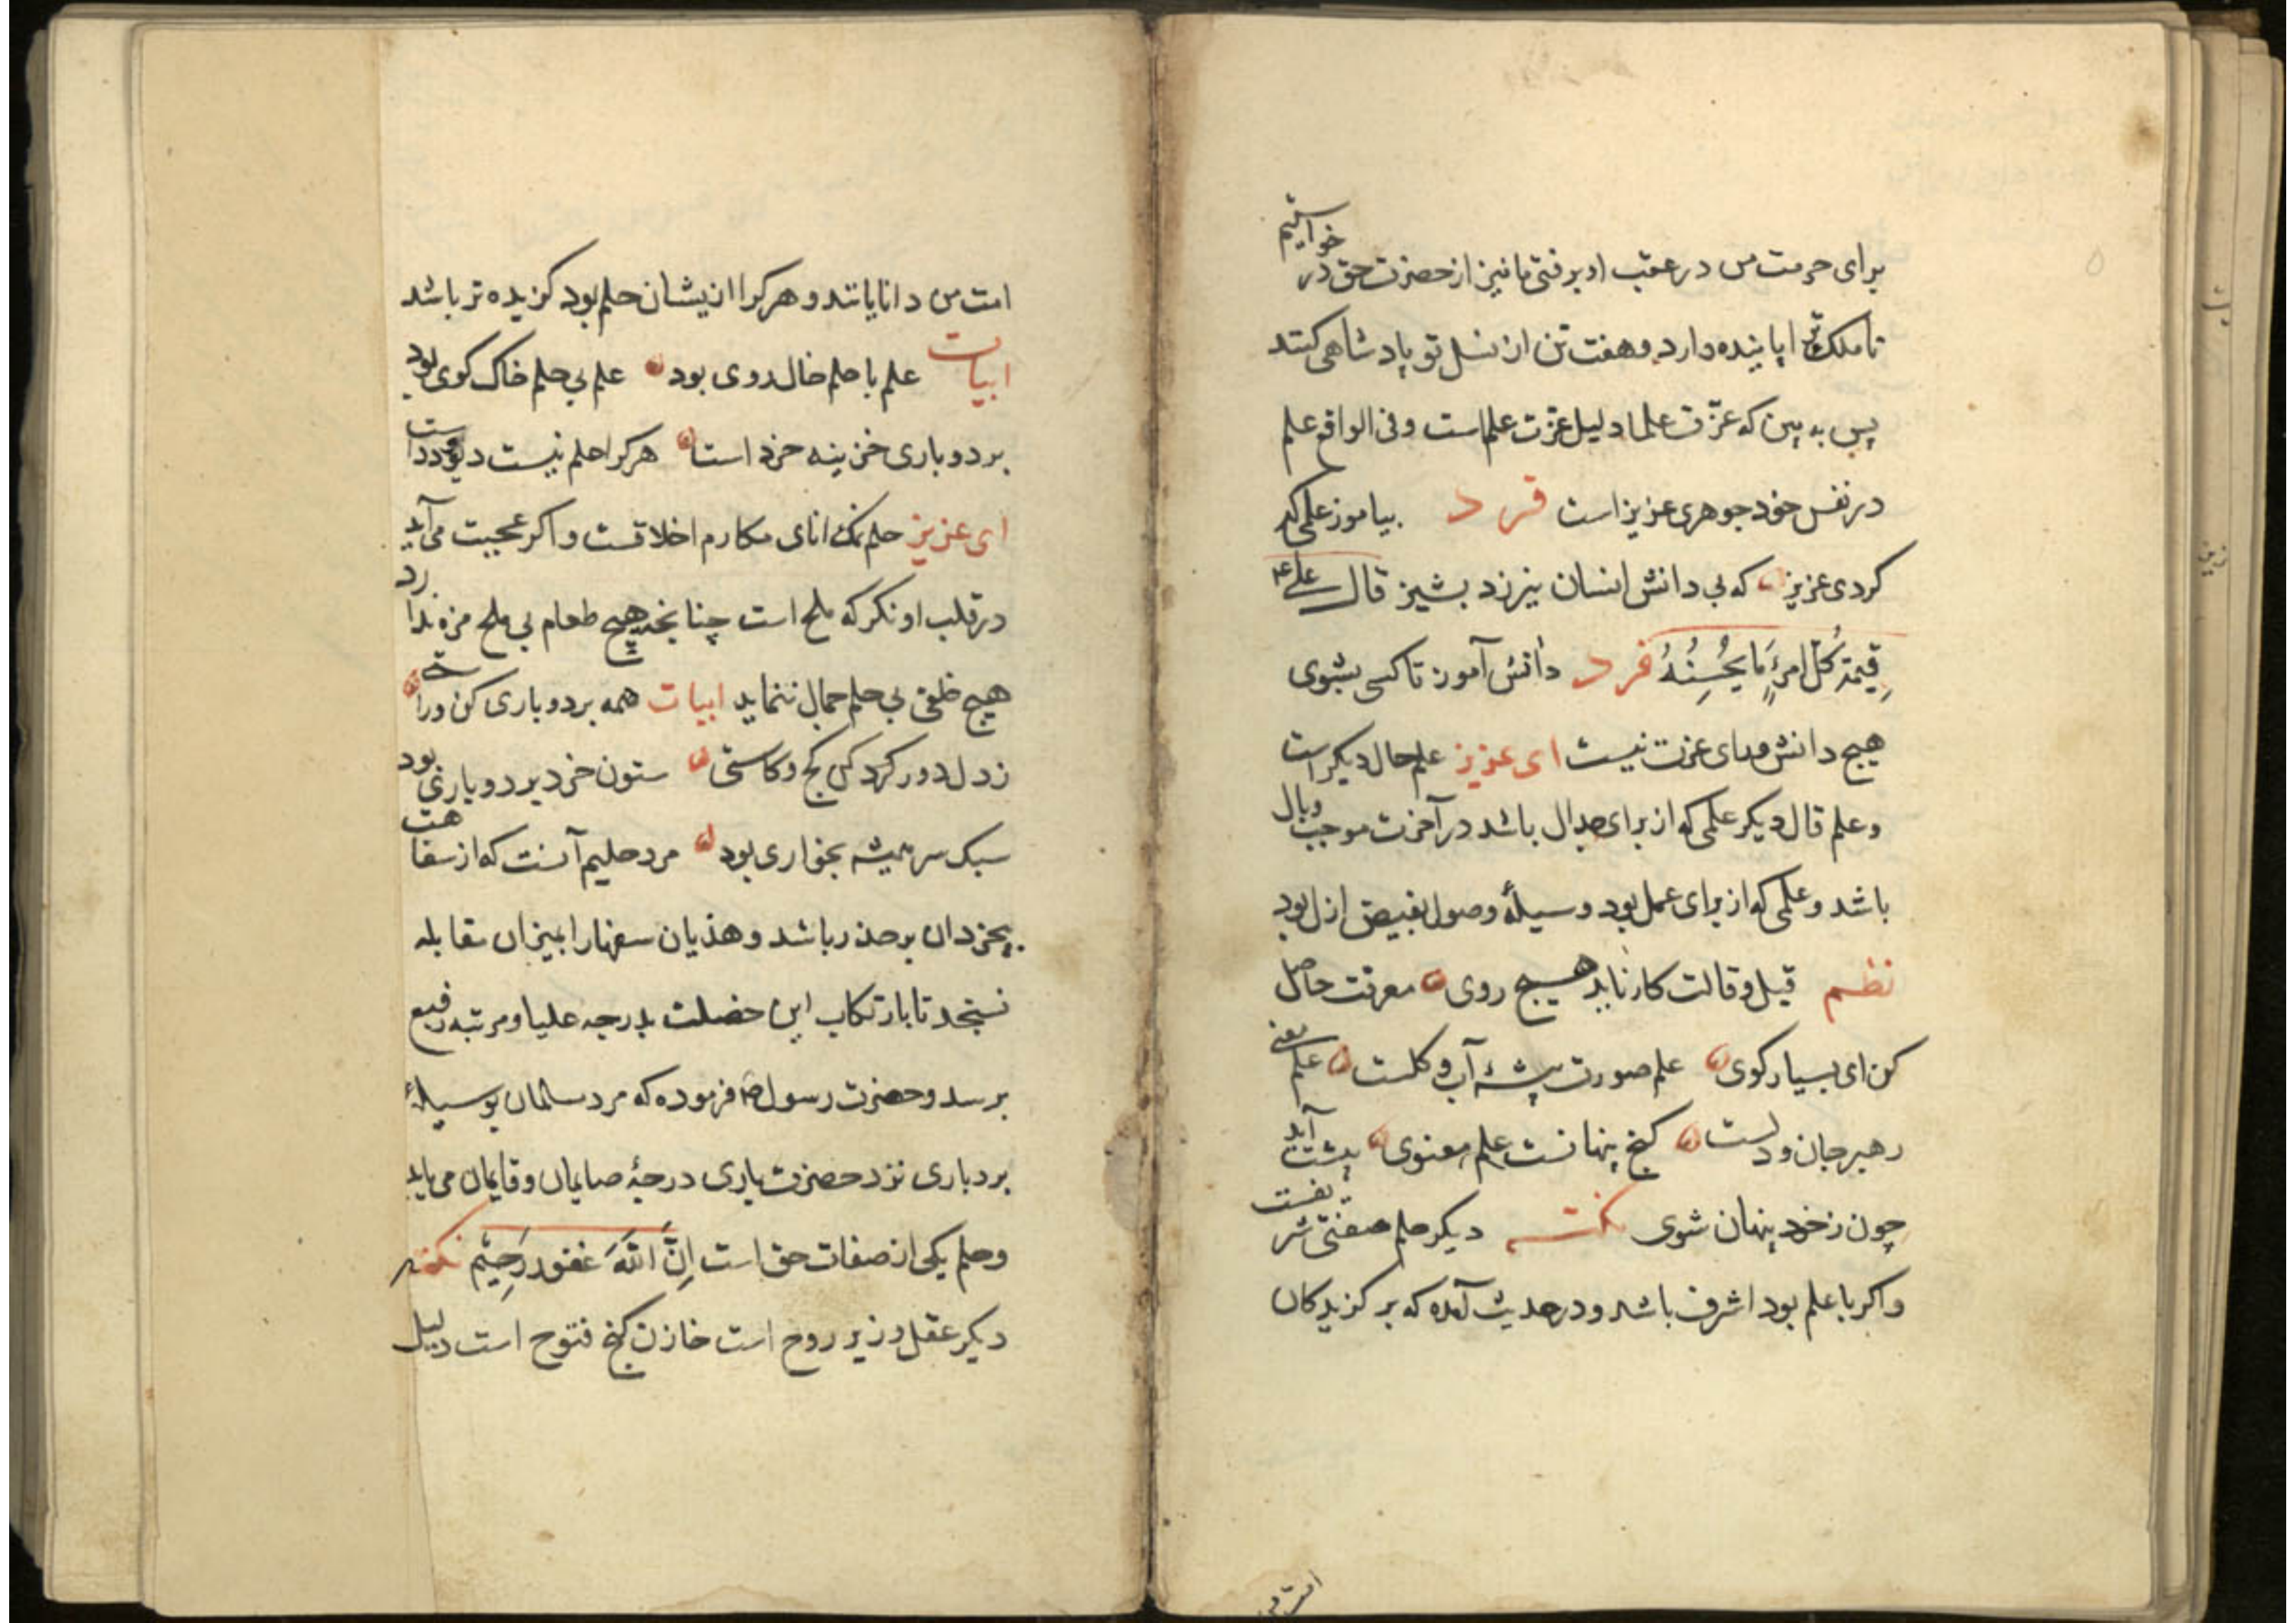 برای حرمت من در عقب او برفتی ما نیز از حضرت حق در خواستیم
تا ملک ترا پاینده دارد و هفت تن از نسل تو پادشاهی کنند
پس به بین که عزّت علما دلیل عزّت علم است و فی الواقع علم
در نفس خود جوهری عزیز است فرد بیاموز علمی که
کردی عزیز که بی دانش انسان نیرزد بشیز قال علی ع
قِیمَةُ کُلِّ امرِءٍ مَا یُحْسِنُهُ فرد دانش آموز تا کسی بشوی
هیچ دانش ورای عزت نیست ای عزیز علم حال دیکر است
و علم قال دیکر علمی که از برای جدال باشد در آخرت موجب وبال
باشد و علمی که از برای عمل بود وسیلهٔ وصول بفیض ازل بود
نظم قیل و قالت کار ناید هیچ روی معرفت حاصل
کن ای بسیار کوی علم صورت پیشهٔ آب و کلست علم معنی
رهبر جان و دلست کنج پنهانست علم معنوی پیشت آید
چون ز خود پنهان شوی نکته دیکر حلم صفتی شریفست
و اکر با علم بود اشرف باشد و در حدیث آمده که بر کزیدکان
امت من
امت من دانایانند و هر کرا از یشان حلم بود کزیده تر باشد
ابیات علم با حلم خال روی بود علم بی حلم خاک کوی بود
بردوباری خزینه خرد است هر کرا حلم نیست دیو و ددا ست
ای عزیز حلم نمکدانای مکارم اخلاقست و اکر عجبت می آید
در قلب او نکر که ملح است چنانچه هیچ طعام بی ملح مزه ندارد
هیچ خلقی بی حلم جمال ننماید ابیات همه بردوباری کن و راستی
ز دل دور کرد کن کج و کاستی ستون خرد بردوباری بود
سبک سر همیشه بخواری بود مرد حلیم آنست که از سفاهت
بیخردان بر حذر باشد و هذیان سفها را بمیزان مقابله
نسنجد تا بارتکاب این خصلت بدرجه علیا و مرتبه رفیع
برسد و حضرت رسول ص فرموده که مرد مسلمان بوسیلهٔ
بردباری نزد حضرت باری درجهٔ صایمان و قایمان می یابد
و حلم یکی از صفات حق است اِنَّ اللّٰهَ غفور رَحِیْم نکته
دیکر عقل وزیر روح است خازن کنج فتوح است دلیل